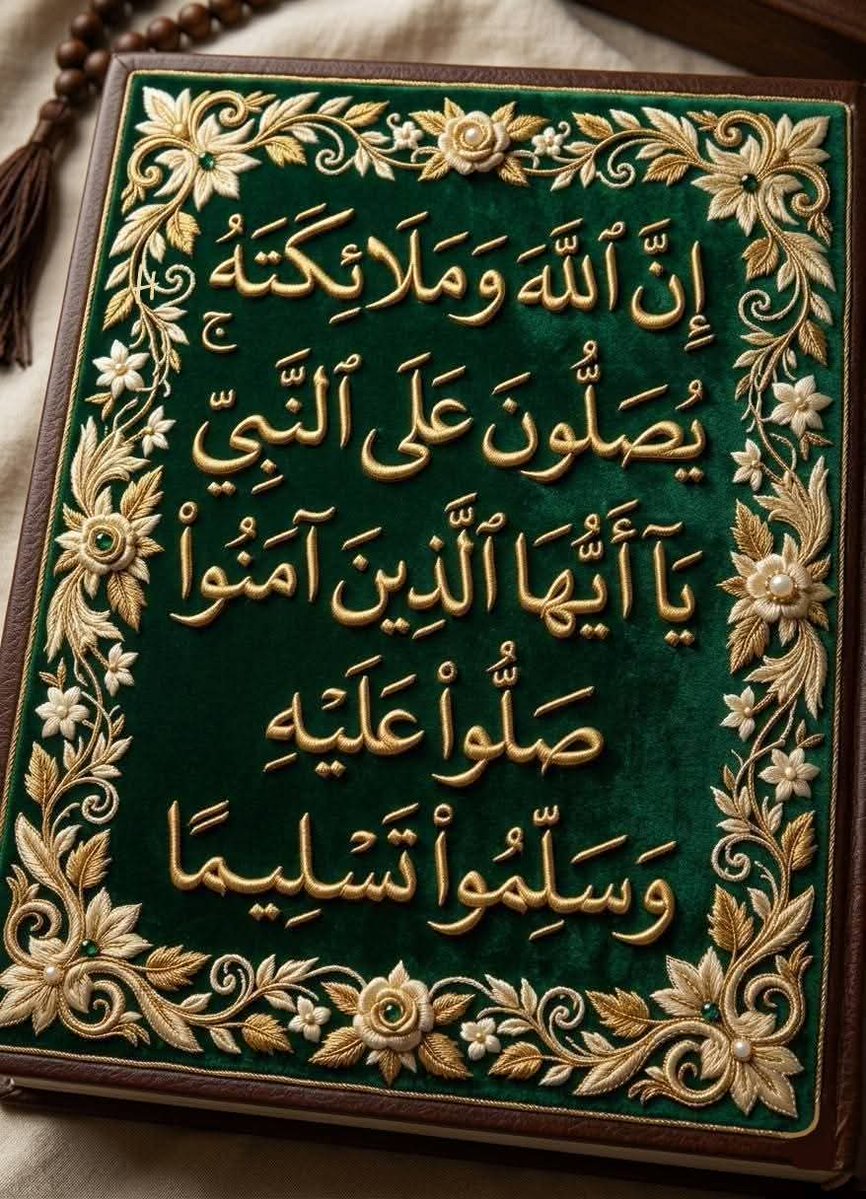 إِنَّ ٱللَّهَ وَمَلَائِكَتَهُ
ج
يُصَلُّونَ عَلَى ٱلنَّبِيِّ
يَآ أَيُّهَا ٱلَّذِينَ آمَنُوا۟
صَلُّوا۟ عَلَيْهِ
وَسَلِّمُوا۟ تَسْلِيمَا